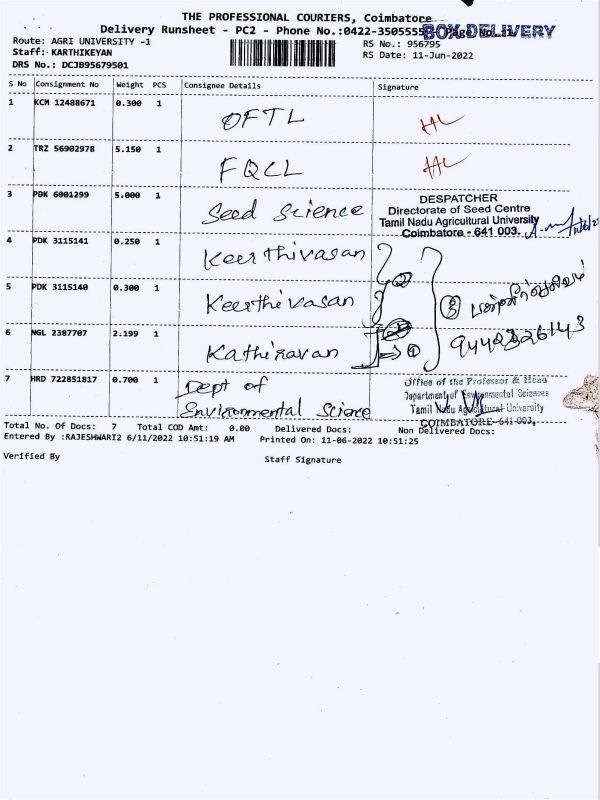 THE PROFESSIONAL COURIERS, Coimbatore
Delivery Runsheet - PC2 - Phone No.:0422-3505555 Page No.:1
BOX DELIVERY
Route: AGRI UNIVERSITY -1
RS No.: 956795
Staff: KARTHIKEYAN
RS Date: 11-Jun-2022
DRS No.: DCJB95679501
S No Consignment No Weight PCS Consignee Details Signature
1 KCM 12488671 0.300 1 OFTL
2 TRZ 56902978 5.150 1 FQCL
3 PDK 6901299 5.000 1 Seed Science
DESPATCHER
Directorate of Seed Centre
Tamil Nadu Agricultural University
Coimbatore - 641 003.
4 PDK 3115141 0.250 1 Keerthivasan
5 PDK 3115140 0.300 1 Keerthivasan
6 NGL 2387707 2.199 1 Kathiravan
7 HRD 722851817 0.700 1 Dept of
Environmental Science
Office of the Professor & Head
Department of Environmental Sciences
Tamil Nadu Agricultural University
COIMBATORE-641 003,
Total No. Of Docs: 7 Total COD Amt: 0.00 Delivered Docs: Non Delivered Docs:
Entered By :RAJESHWARI2 6/11/2022 10:51:19 AM Printed On: 11-06-2022 10:51:25
Verified By Staff Signature